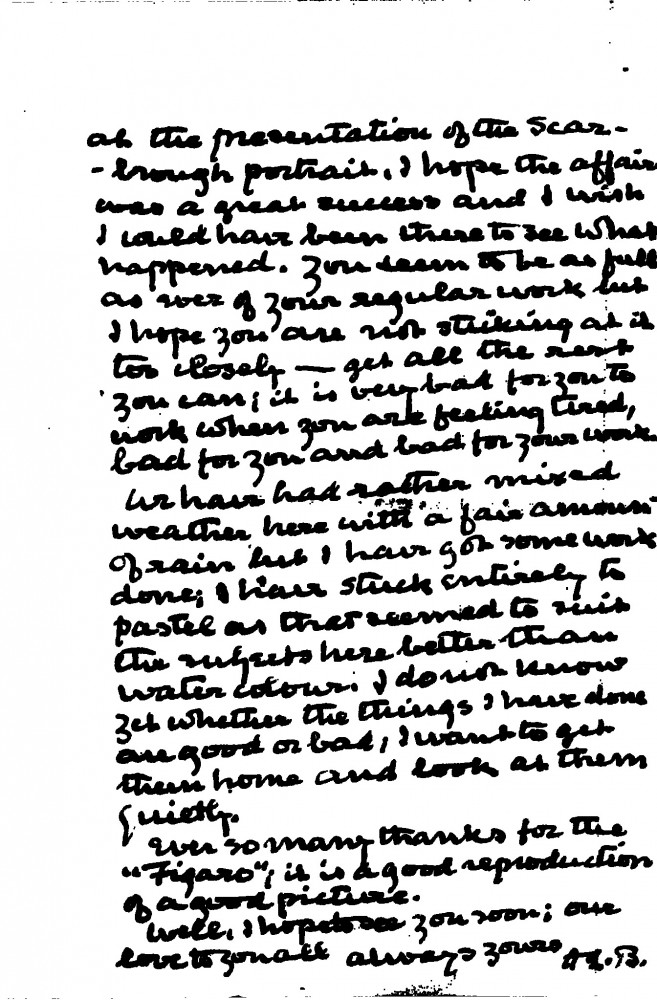 at the presentation of the Scar-
-brough portrait. I hope the affair
was a great success and I wish
I could have been there to see what
happened. You seem to be as full
as ever of your regular work but
I hope you are not sticking at it
too closely — get all the rest
you can; it is very bad for you to
work when you are feeling tired,
bad for you and bad for your work.
We have had rather mixed
weather here with a fair amount
of rain but I have got some work
done; I have stuck entirely to
pastel as that seemed to suit
the subjects here better than
water colour. I do not know
yet whether the things I have done
are good or bad; I want to get
them home and look at them
quietly.
Ever so many thanks for the
"Figaro"; it is a good reproduction
of a good picture.
Well, I hope to see you soon; our
love to you all always yours A.L.B.